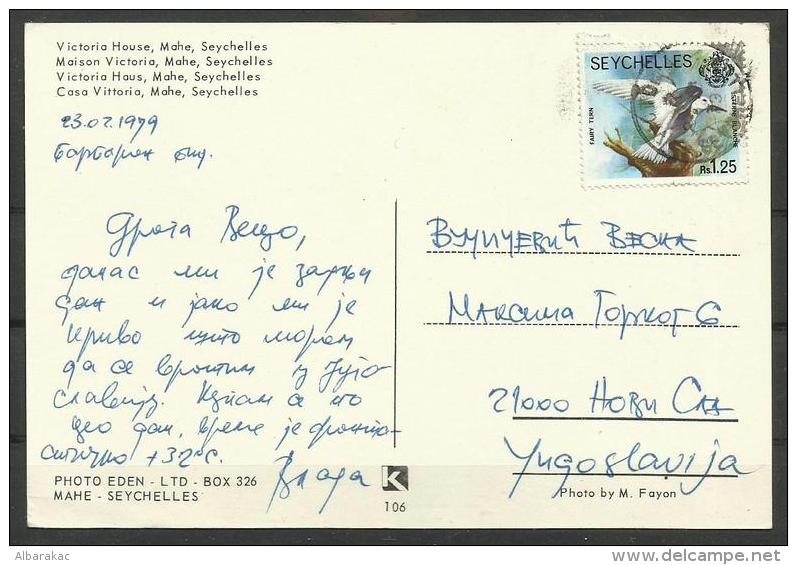 Victoria House, Mahe, Seychelles
Maison Victoria, Mahe, Seychelles
Victoria Haus, Mahe, Seychelles
Casa Vittoria, Mahe, Seychelles
23.02.1979
Драга Весо,
данас ми је
дан и јако ми је
криво што морам
да се вратим у Југо-
славију. Купам се по
цео дан, време је фанта-
стично +32°C.
Влада
PHOTO EDEN - LTD - BOX 326
MAHE - SEYCHELLES
K
106
SEYCHELLES
FAIRY TERN
STERNE BLANCHE
Rs.1.25
Вујичевић Весна
Максима Горког 6
21000 Нови Сад
Yugoslavija
Photo by M. Fayon
Albarakac
delcampe.net